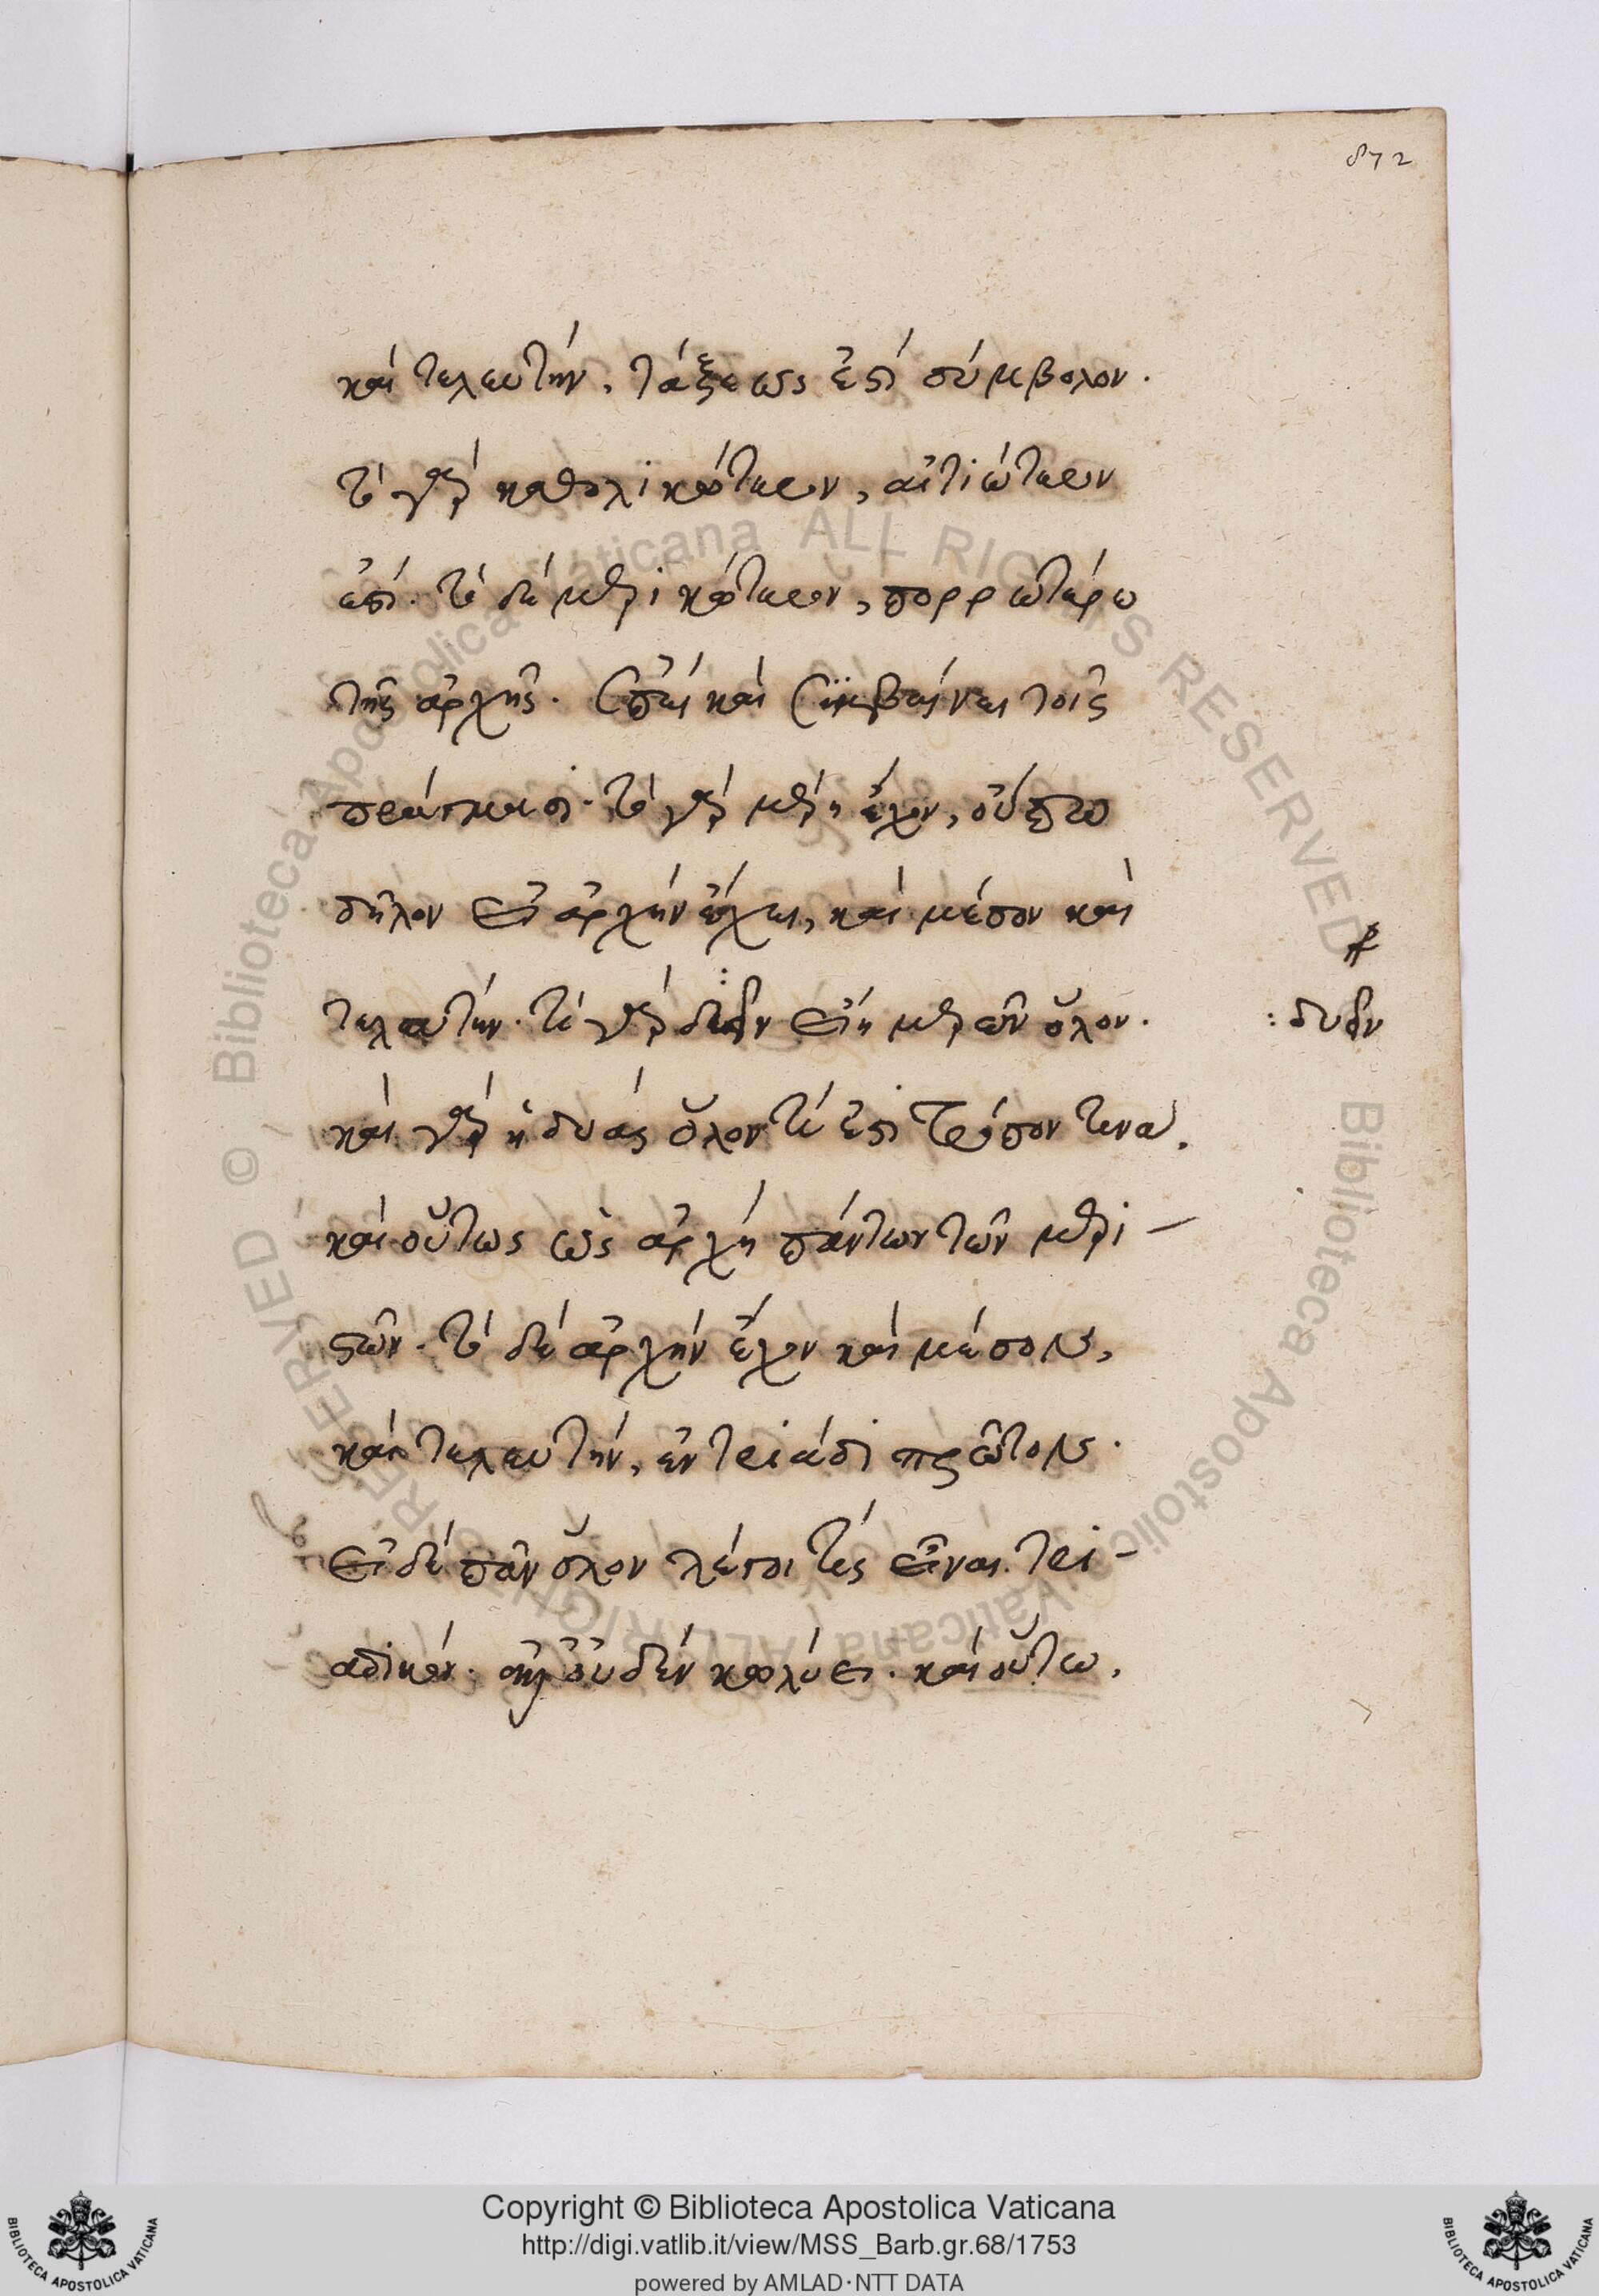 872
καὶ τελευτὴν, τάξεώς ἐστι σύμβολον.
τὸ γὰρ καθολικώτερον, αἰτιώτερον
ἐστί. τὸ δὲ μερικώτερον, πορρωτέρω
τῆς ἀρχῆς. ἐπεὶ καὶ συμβαίνει τοῖς
πράγμασι. τὸ γὰρ μέρη ἔχον, οὔπω
δῆλον εἰ ἀρχὴν ἔχει, καὶ μέσον καὶ
τελευτήν. τί γὰρ εἰ ἐκ δυεῖν εἴη μερῶν ὅλον.
: δυεῖν
καὶ γὰρ ἡ δυὰς ὅλον τί ἐστι τρόπον τινα,
καὶ οὕτως ὡς ἀρχὴ πάντων τῶν μερι-
στῶν. τὸ δὲ ἀρχὴν ἔχον καὶ μέσον,
καὶ τελευτὴν, ἐν τριάδι πρῶτον.
εἰ δὲ πᾶν ὅλον λέγοι τίς εἶναι τρι-
αδικόν. ἀλλ' οὐδὲν κωλύει. καὶ οὕτω,
Copyright © Biblioteca Apostolica Vaticana
http://digi.vatlib.it/view/MSS_Barb.gr.68/1753
powered by AMLAD·NTT DATA
BIBLIOTECA APOSTOLICA VATICANA
BIBLIOTECA APOSTOLICA VATICANA
© Biblioteca Apostolica Vaticana ALL RIGHTS RESERVED
Biblioteca Apostolica Vaticana ALL RIGHTS RESERVED